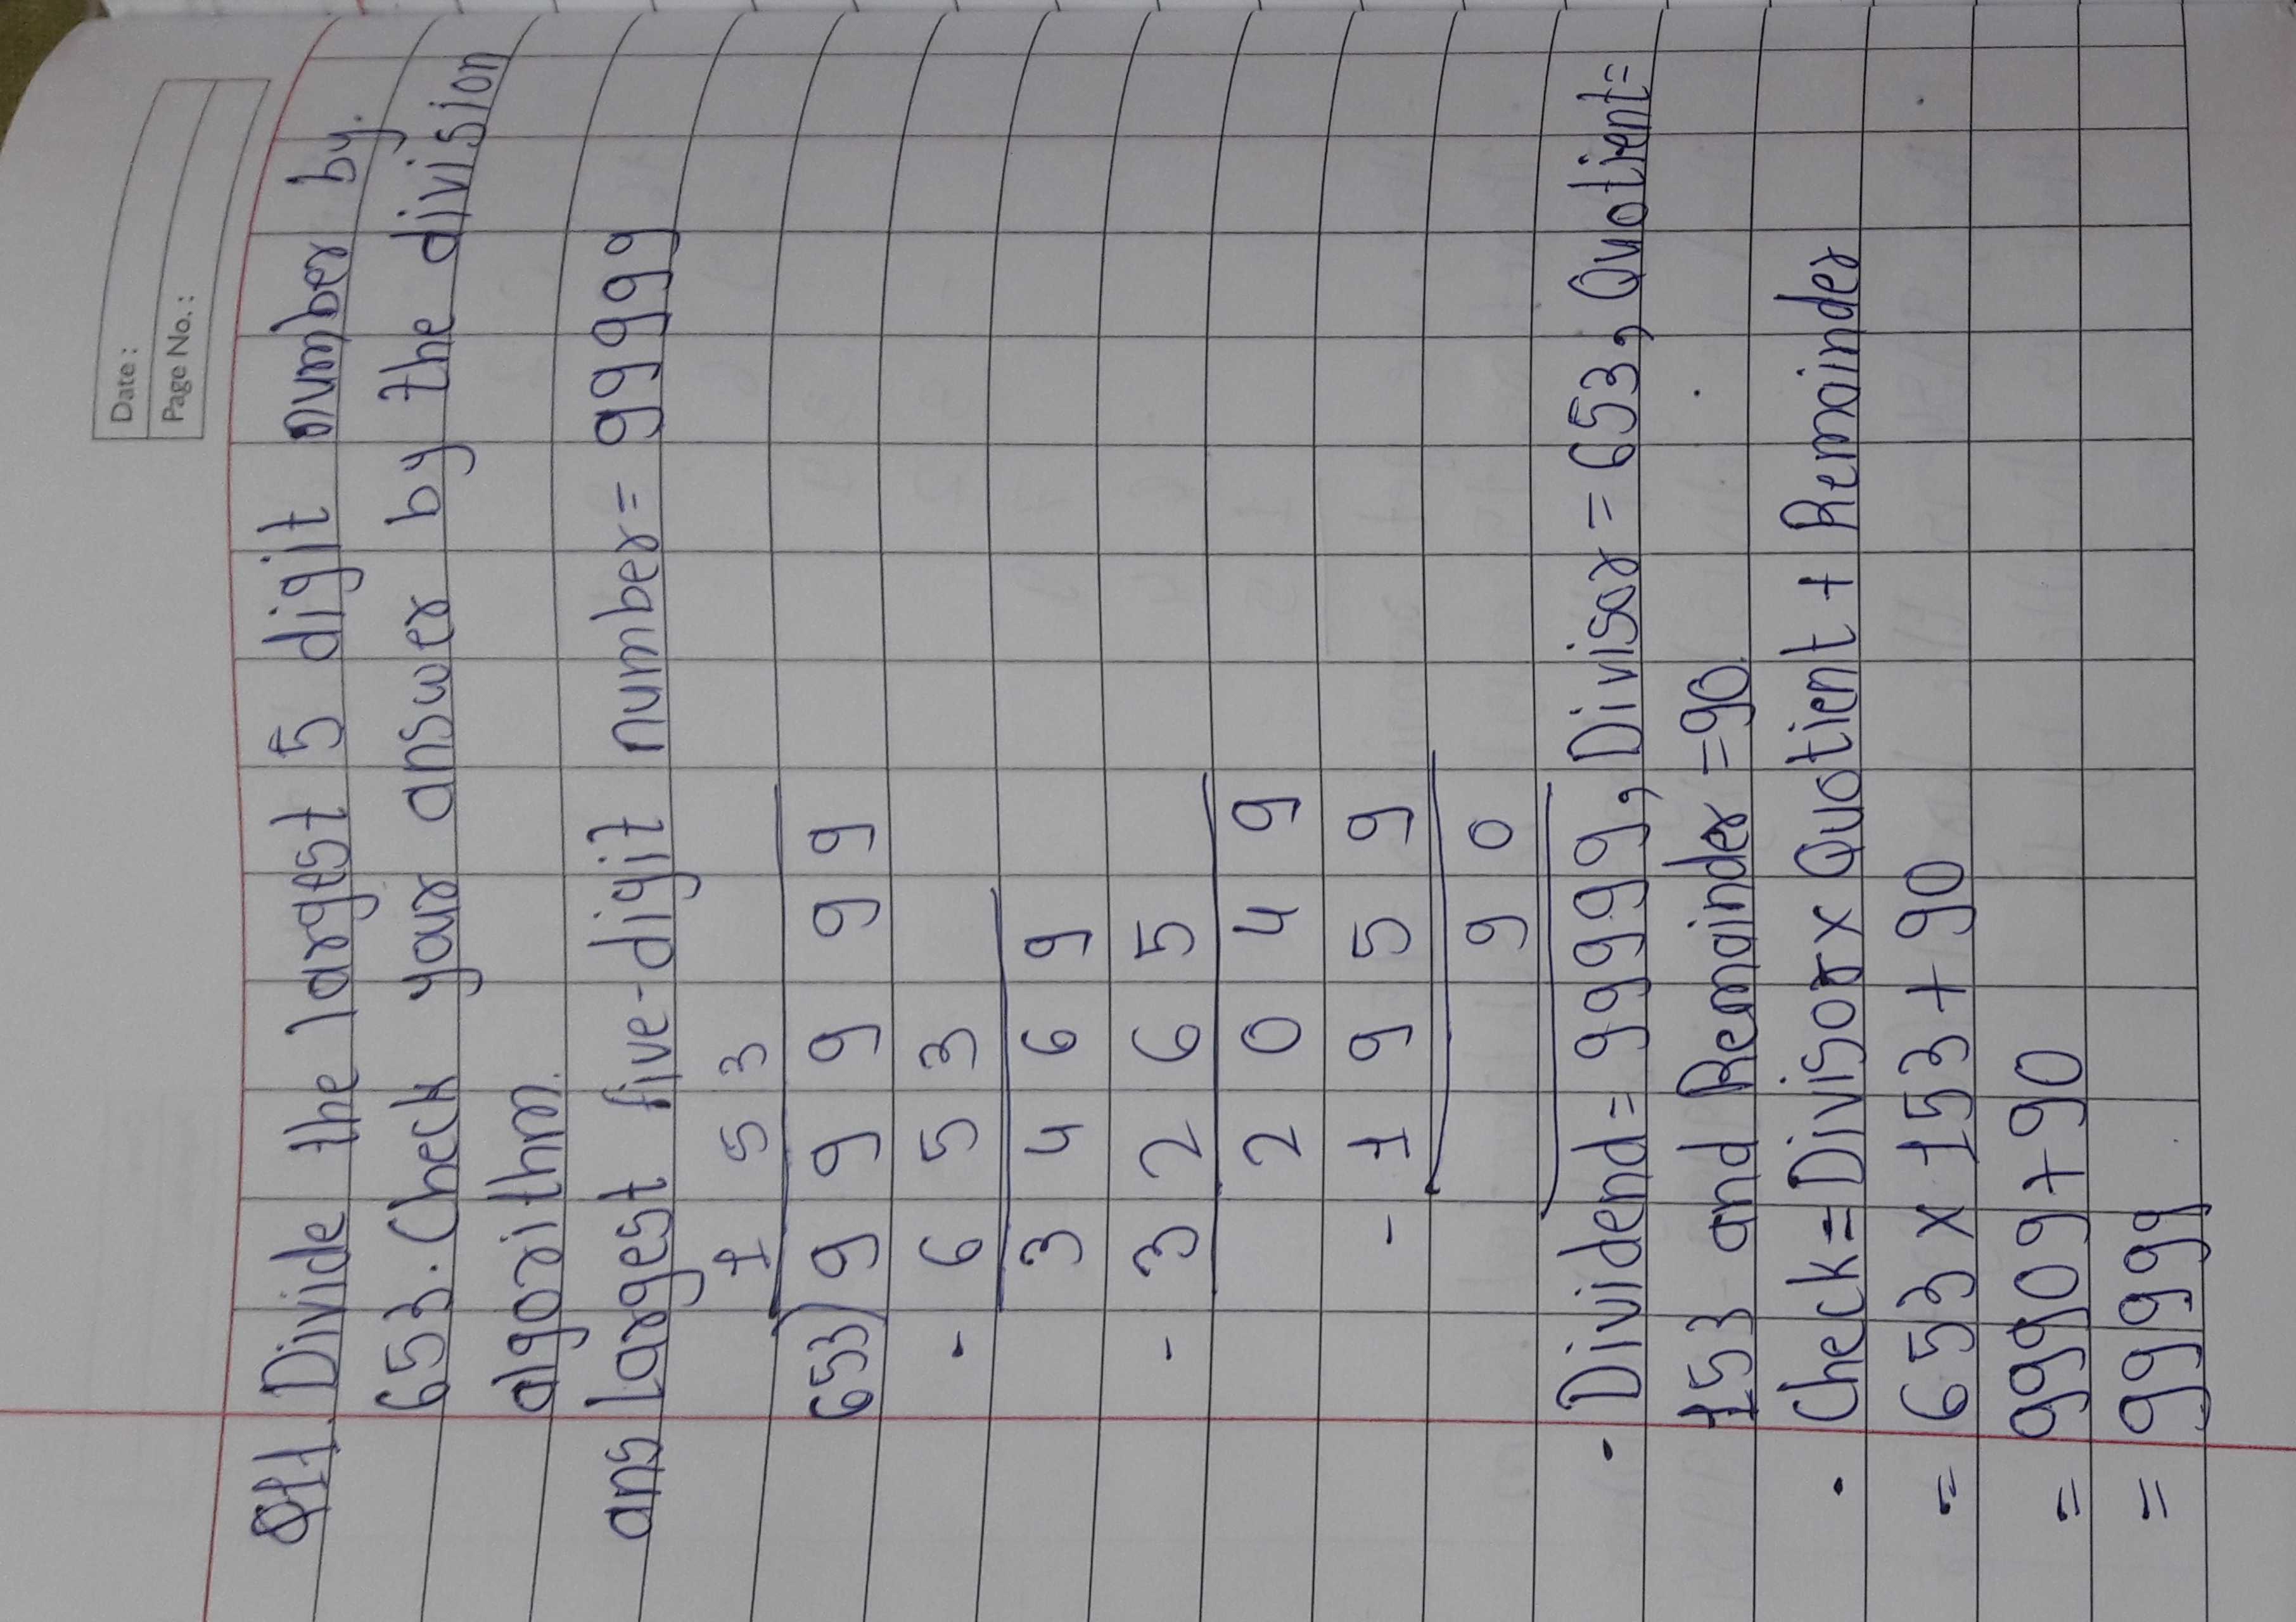 Date :
Page No. :
Q11. Divide the largest 5 digit number by.
653. Check your answer by the division
algorithm.
ans largest five-digit number= 99999
1 5 3
653) 9 9 9 9 9
- 6 5 3
3 4 6 9
- 3 2 6 5
2 0 4 9
- 1 9 5 9
9 0
• Dividend = 99999, Divisor = 653, Quotient=
153 and Remainder =90.
• Check=Divisor x Quotient + Remainder
= 653 x 153 + 90
= 99909+90
= 99999